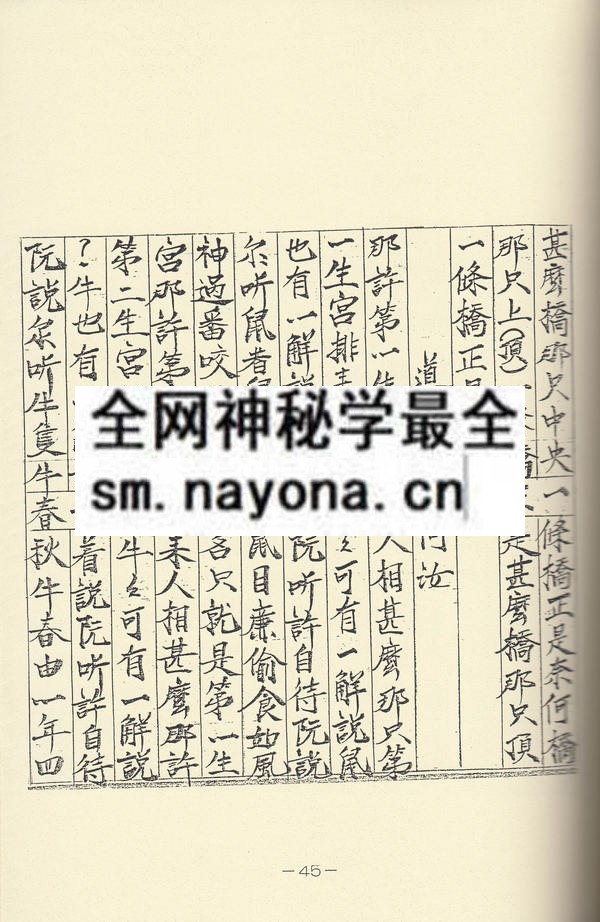 甚麼橋那只中央一條橋正是奈何橋
那只上(頂)是甚麼橋那只頂
一條橋正
道何汝
那許第一生人相甚麼那只第
一生宮排可有一解說鼠
也有一解說阮听許自待阮說
尔听鼠者鼠目廉偷食如風
神過番咬只就是第一生
宮那許第某人相甚麼那許
第二生宮牛々可有一解說
?牛也有着說阮听許自待
阮說尔听牛隻牛春秋牛春由一年四
全网神秘学最全
sm.nayona.cn
—45—